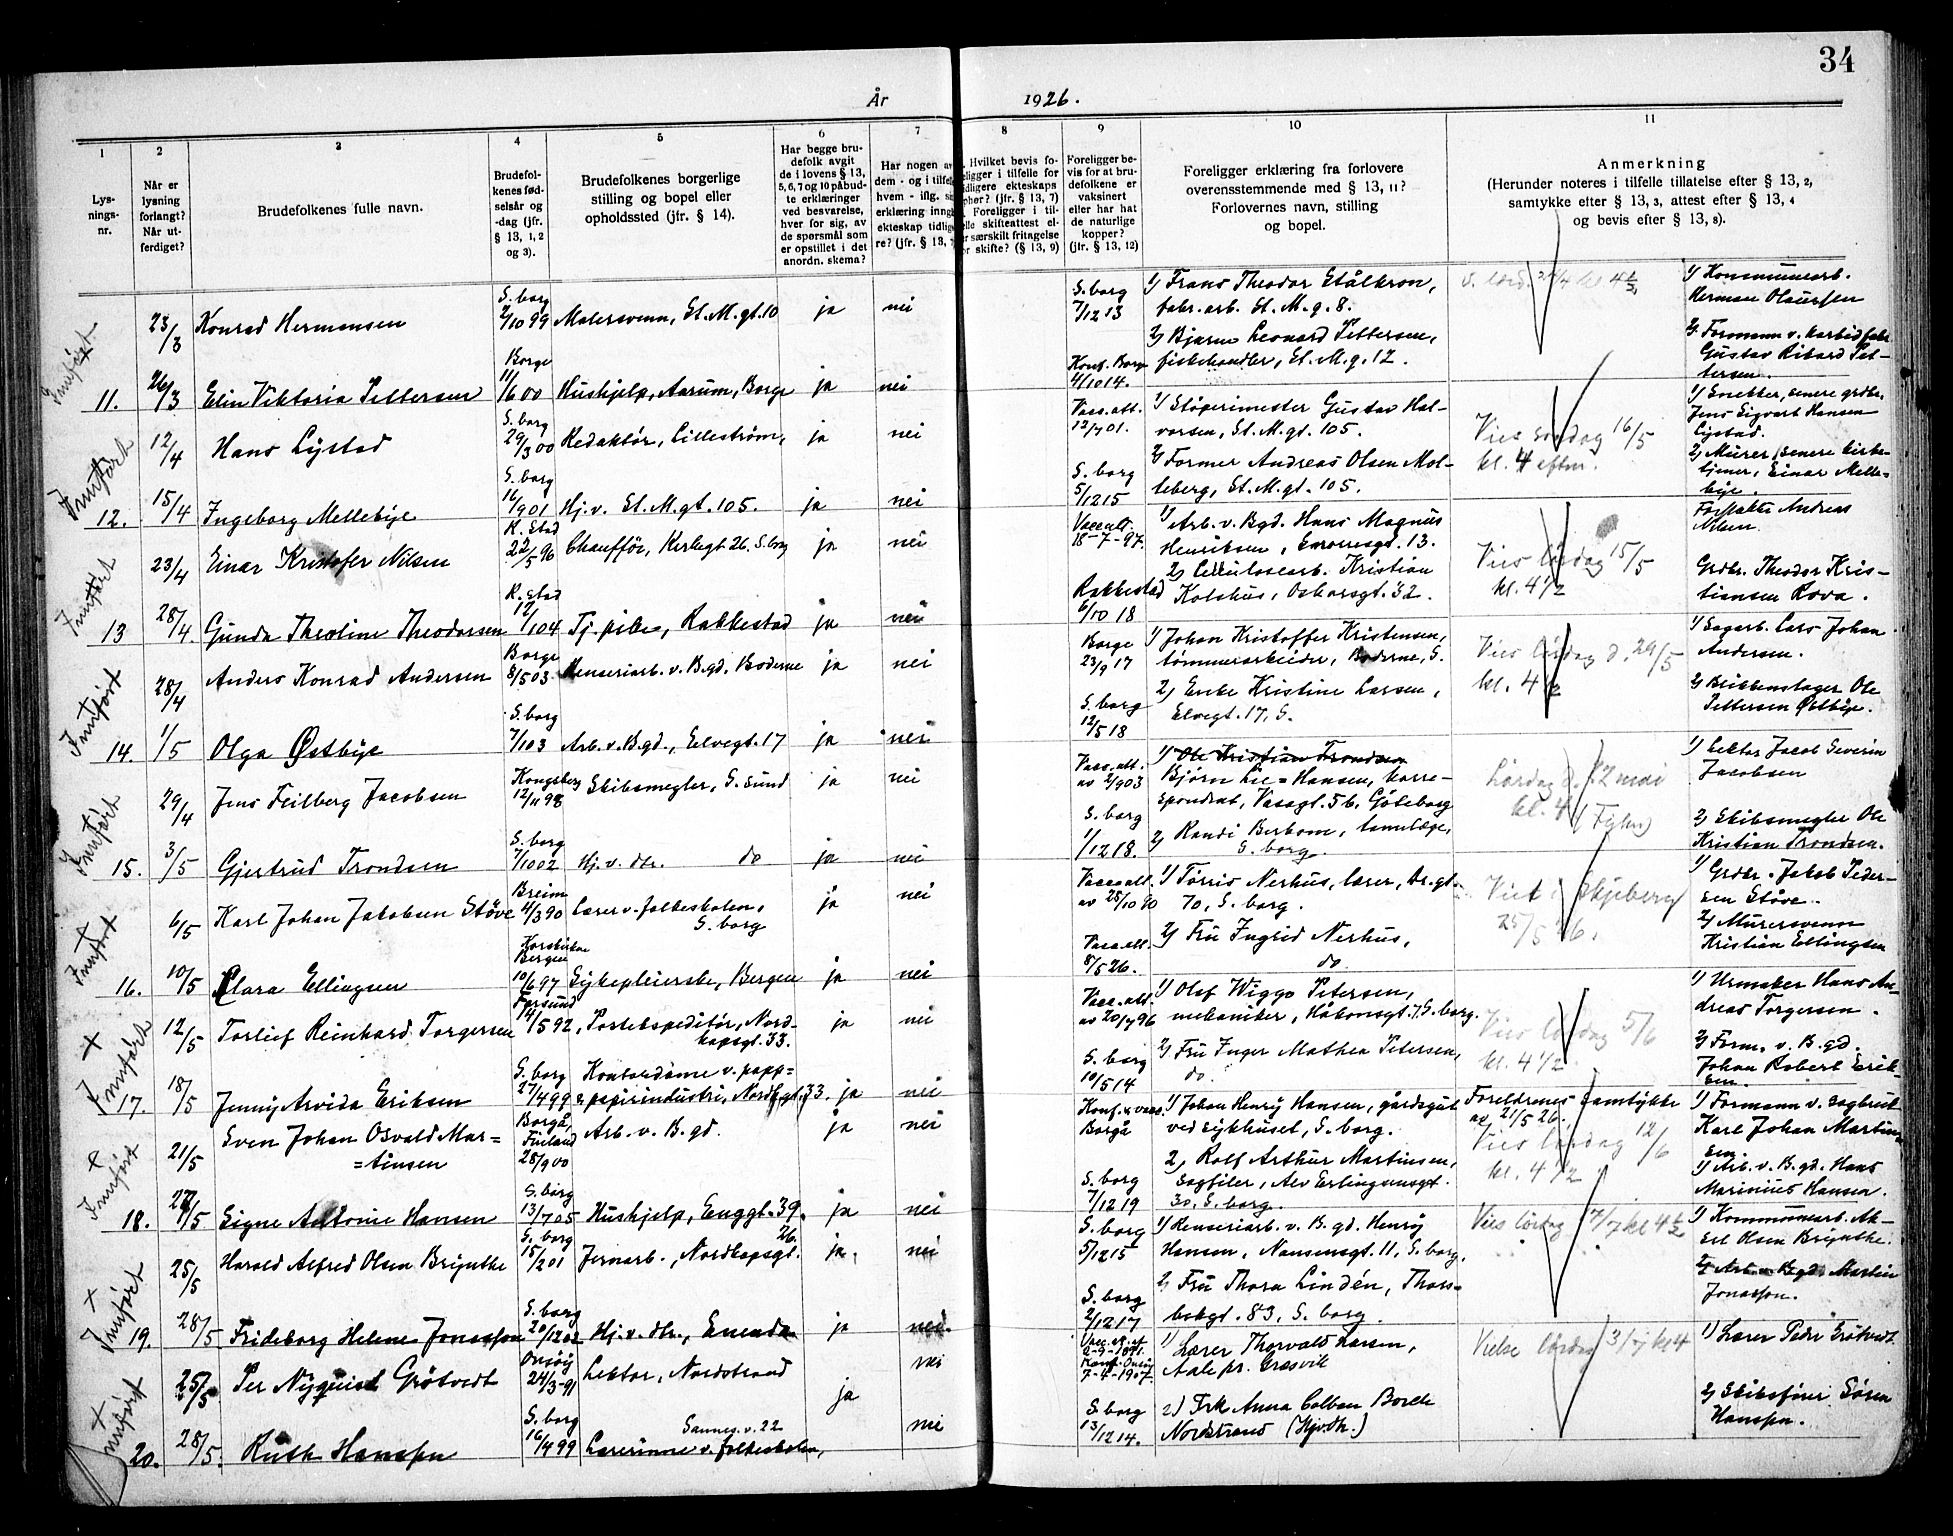 34
År 1926.
1 2 3 4 5 6 7 8 9 10 11
Lys-
nings-
nr.
Når er
lysning
forlangt?
Når ut-
ferdiget?
Brudefolkenes fulle navn.
Brudefol-
kenes fød-
selsår og
-dag (jfr.
§ 13, 1, 2
og 3).
Brudefolkenes borgerlige
stilling og bopel eller
opholdssted (jfr. § 14).
Har begge bru-
defolk avgit
de i lovens § 13,
5, 6, 7 og 10 påbud-
te erklæringer
ved besvarelse,
hver for sig, av
de spørsmål som
er opstillet i det
anordn. skema?
Har nogen av
dem - og i tilfelle
hvem - iflg. sin
erklæring inngått
ekteskap tidlige-
re? (jfr. § 13,
Hvilket bevis fo-
religger i tilfelle for
tidligere ekteskaps
ophør? (jfr. § 13, 7)
Foreligger i til-
felle skifteattest el-
ler særskilt fritagelse
for skifte? (§ 13, 9)
Foreligger be-
vis for at bru-
defolkene er
vaksinert
eller har hat
de naturlige
kopper?
(jfr. § 13, 12)
Foreligger erklæring fra forlovere
overensstemmende med § 13, 11?
Forlovernes navn, stilling
og bopel.
Anmerkning
(Herunder noteres i tilfelle tillatelse efter § 13, 2,
samtykke efter § 13, 3, attest efter § 13, 4
og bevis efter § 13, 8).
Innført
11.
23/3 Konrad Hermansen S. borg 2/10 99 Malersvenn, St. M. gt. 10 ja nei
S. borg 7/12 13
1) Frans Theodor Stålkron,
fabr. arb. St. M. g. 8.
1) Kommunearb.
Herman Olaussen
26/3 Elin Viktoria Pettersen Borge 11/6 00 Hushjelp, Aarum, Borge ja nei
Konf. Borge 4/10 14.
2) Bjarne Leonard Pettersen,
fiskehandler, St. M. g. 12.
2) Formann v. karbidfabr.
Gustav Rikard Pet-
tersen.
Innført
12.
12/4 Hans Lystad S. borg 29/3 00 Redaktør, Lillestrøm, ja nei
Vacc. att. 12/7 01.
1) Støperimester Gustav Hal-
vorsen, St. M. gt. 105.
Vies søndag 16/5
kl. 4 eftm.
1) Snekker, senere grdbr.
Jens Sigvart Hansen
Lystad.
15/4 Ingeborg Mellebye S. borg 16/9 01 Hj. v. St. M. gt. 105. ja nei
S. borg 5/12 15
2) Former Andreas Olsen Mol-
teberg, St. M. gt. 105.
2) Murer, senere kirke-
tjener, Einar Melle-
bye.
Innført
13
23/4 Einar Kristofer Nilsen R. stad 22/5 96 Chauffør, Kirkegt 26, S. borg ja nei
Vacc att. 18-7-97.
1) Arb. v. Bgd. Hans Magnus
Henriksen, gt. 13.
Vies lørdag 15/5
kl. 4 1/2
Andreas
Nilsen.
28/4. Gunda Theoline Theodorsen R. stad 12/1 04 Tj. pike, Rakkestad ja nei
Rakkestad 6/10 18
2) Cellulosearb. Kristian
Kolshus, Oskarsgt. 32.
Grdbr. Theodor Kris-
tiansen Rova.
Innført
14.
28/4 Anders Konrad Andersen Borge 8/5 03. Renseriarb. v. B.gd. Boderne ja nei
Borge 23/9 17
1) Johan Kristoffer Kristensen,
tømmerarbeider, Boderne, S.
Vies lørdag d. 29/5
kl. 4 1/2
1) Sagarb. Lars Johan
Andersen.
1/5 Olga Østbye S. borg 7/1 03 Arb. v. B.gd., Elvegt. 17 ja nei
S. borg 12/5 18
2) Enke Kristine Larsen,
Elvegt. 17, S.
2) Brikkenslager Ole
Pettersen Østbye.
Innført
15.
29/4 Jens Feilberg Jacobsen Kongsberg 12/11 98 Skibsmegler, S. sund ja nei
Vacc. att. av 2/9 03
1) Ole Kristian Trondsen
Bjørn Lie-Hansen, korre-
spondent, Vasagt. 5 b, Göteborg
Lørdag d. 12 mai
kl. 4
1) Lektor Jacob Severin
Jacobsen
3/5 Gjertrud Trondsen S. borg 7/10 02 Hj. v. dtr. do ja nei
S. borg 1/12 18.
2) Randi Berbom, tannlæge,
S. borg.
2) Skibsmegler Ole
Kristian Trondsen.
Innført
16.
6/5 Karl Johan Jakobsen Støve Breim 4/3 90 Lærer v. folkeskolen,
S. borg ja nei
Vacc att. av 28/10 90
1) Tørris Nerhus, lærer, Dr. gt.
70, S. borg.
Viet i Skjeberg
25/5 26.
1) Grdbr. Jakob Peder-
sen Støve.
10/5 Clara Ellingsen Korskirken Bergen 10/6 97 Sykepleierske, Bergen ja nei
Vacc. att. 8/5 26.
2) Fru Ingrid Nerhus,
do.
2) Murersvenn
Kristian Ellingsen
+ Innført
17.
12/5 Torlief Reinhard Torgersen Farsund 14/1 592, Postekspeditør, Nord-
kapsgt. 33. ja nei
Vacc. att. av 20/7 96
1) Olaf Wiggo Petersen,
mekaniker, Håkonsgt. 7, S. borg.
Vies lørdag 5/6
kl. 4 1/2.
1) Urmaker Hans An-
dreas Torgersen.
18/5 Jenny Arvida Eriksen S. borg 27/4 99 Kontordame v. papp-
& papirindustri, Nordk.gt. 33. ja nei
S. borg 10/5 14
2) Fru Inger Mathea Petersen,
do.
2) Form. v. B. gd.
Johan Robert Erik-
sen.
+ Innført
18.
21/5 Sven Johan Osvald Mar-
=tinsen Borgå, Finland 28/9 00 Arb. v. B. gd. ja nei
Konf. & vacc. Borgå
1) Johan Henry Hansen, gårdsgut
ved sykhuset, S. borg.
Foreldrenes samtykke
av 21/5 26.
Vies lørdag 12/6
kl. 4 1/2
1) Formann v. sagbruk
Karl Johan Martin-
sen.
27/5 Signe Antonie Hansen S. borg 13/7 05 Hushjelp, Enggt. 39. ja nei
S. borg 7/12 19
2) Rolf Arthur Martinsen,
sagfiler, Alv Erlingsønsgt.
30, S. borg.
1) Arb. v. B. gd. Hans
Marinius Hansen.
+ Innført
19.
25/5 Harald Alfred Olsen Brynthe S. borg 15/2 01 Jernarb., Nordkapsgt. 26. ja nei
S. borg 5/12 15
1) Renseriarb. v. B. gd. Henry
Hansen, Nansensgt. 11, S. borg.
Vies lørdag 7/7 kl 4 1/2
1) Kommunearb. Ak-
sel Olsen Brynthe.
28/5 Frideborg Helene Jonasson S. borg 20/12 02 Hj. v. dtr., Enenda ja nei.
S. borg 2/12 17
2) Fru Thora Lindén, Thors-
bekgt. 83, S. borg.
2) Arb. v. B. gd. Martin
Jonasson.
+ Innført
20.
25/5. Per Nyquist Grøtvedt Onsøy 24/3-91 Lektor, Nordstrand ja nei
Vac. at. af 2-9-1891.
Konf. Onsøy 7-4-1907
1) Lærer Thorvald Larsen,
Aale pr. Græsvik
Vielse lørdag 3/7 kl 4
1) Lærer Peder Grøtvedt.
28/5. Ruth Hanssen S. borg 16/4 99 Sannes. v. 22
Lærerinne v. folkeskolen, nei
S. borg 13/12 14.
2) Frk Anna Colban Borch
Nordstrand (Hjv.dtr.)
2) Skibsfører Søren
Hanssen.